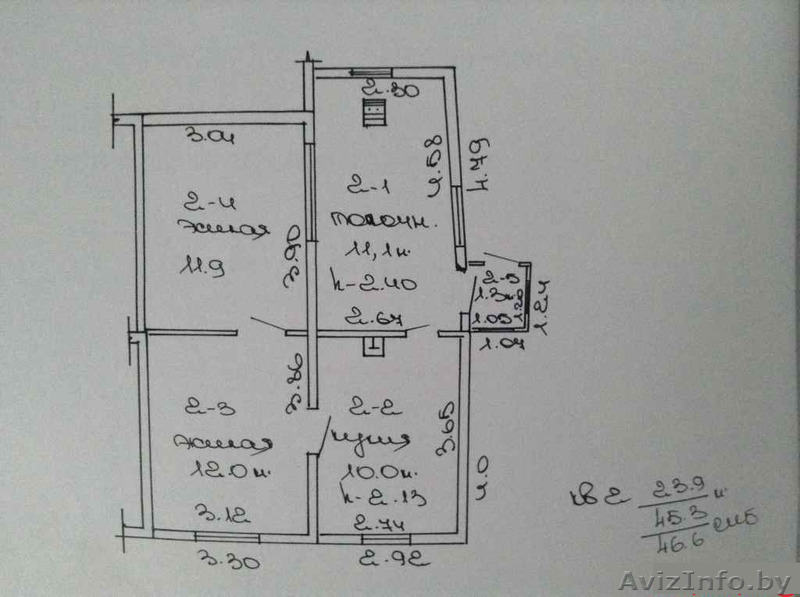 2.30
3.04
4.58
4.79
2-1
2-4
жилая
11.9
топочн.
11,1м
3.90
h-2.40
2.67
2-5
1.3м
1.05
1.20
1.24
1.07
3.86
2-3
жилая
12.0м
3.12
3.30
2-2
кухня
10.0м
h-2.13
2.74
2.92
3.65
4.0
кв 2 23.9 м
45.3
46.6 СНБ
AvizInfo.by